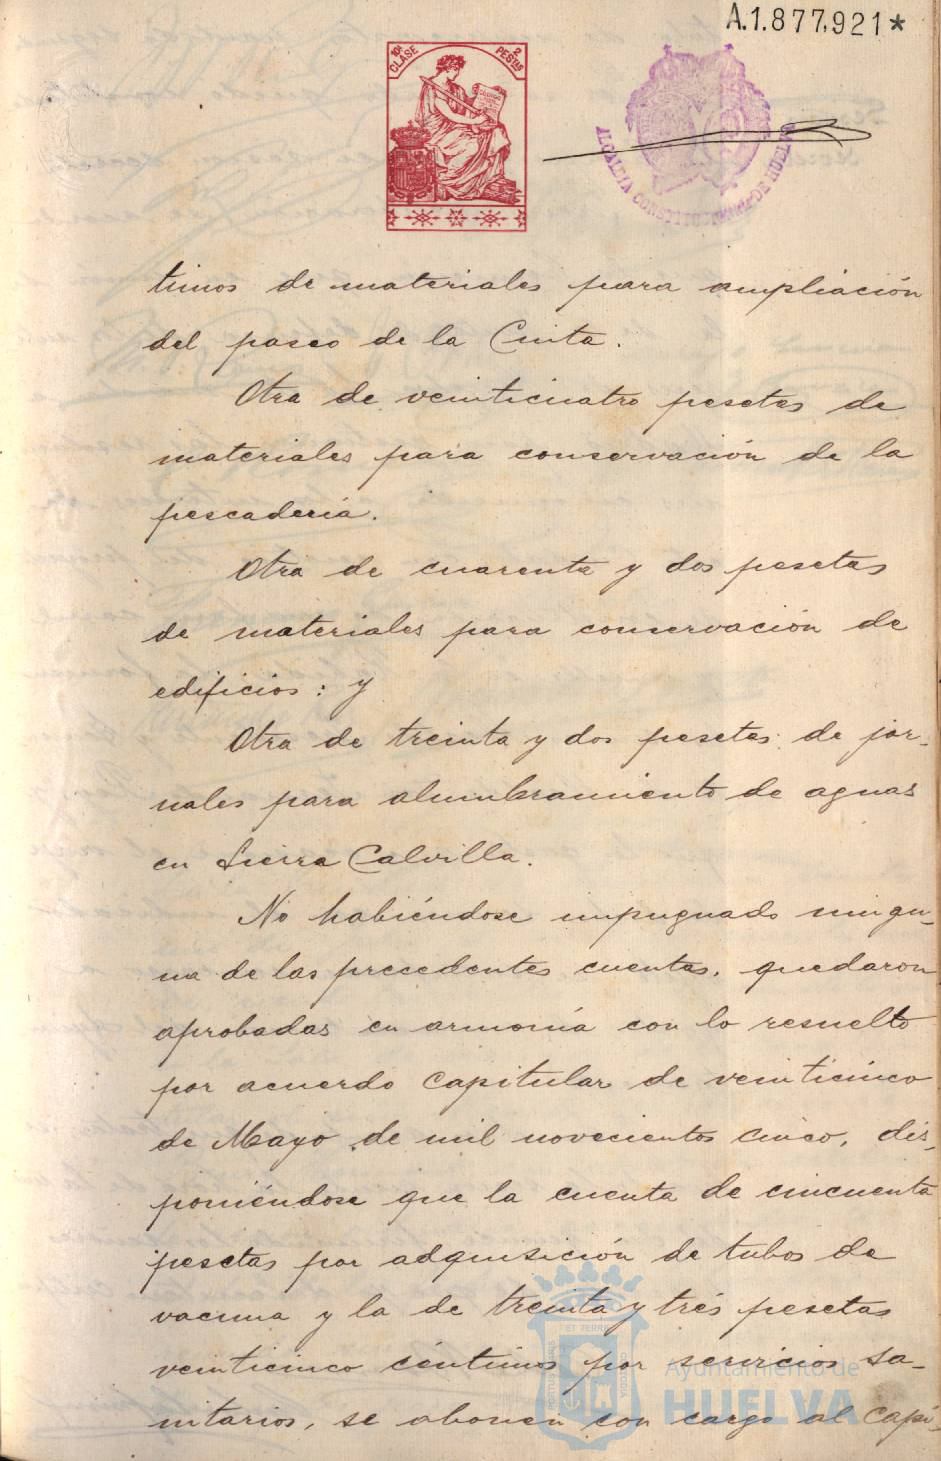 A.1.877,921*
10ª CLASE
2 PESTAS
ALCALDIA CONSTITUCIONAL DE HUELVA
timos de materiales para ampliación
del paseo de la Cinta.
Otra de veinticuatro pesetas de
materiales para conservación de la
pescadería.
Otra de cuarenta y dos pesetas
de materiales para conservación de
edificios: y
Otra de treinta y dos pesetas de jor-
nales para alumbramiento de aguas
en Sierra Calvilla.
No habiéndose impugnado ningu-
na de las precedentes cuentas, quedaron
aprobadas en armonía con lo resuelto
por acuerdo Capitular de veinticinco
de Mayo de mil novecientos cinco, dis-
poniéndose que la cuenta de cincuenta
pesetas por adquisición de tubos de
vacuna y la de treinta y tres pesetas
veinticinco céntimos por servicios sa-
nitarios, se abonen con cargo al Capí-
Ayuntamiento de
HUELVA